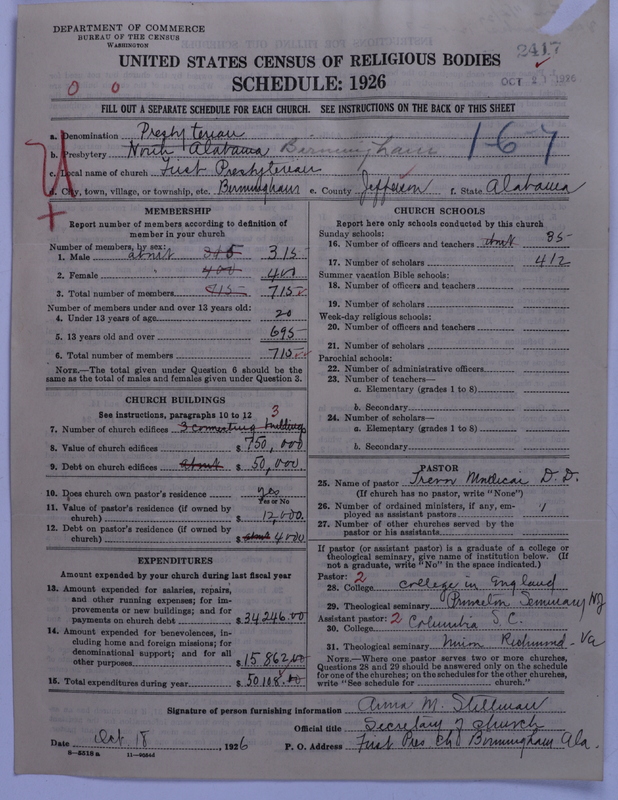 DEPARTMENT OF COMMERCE
BUREAU OF THE CENSUS
WASHINGTON
2417
UNITED STATES CENSUS OF RELIGIOUS BODIES
SCHEDULE: 1926
OCT 21 1926
0 0
FILL OUT A SEPARATE SCHEDULE FOR EACH CHURCH. SEE INSTRUCTIONS ON THE BACK OF THIS SHEET
a. Denomination Presbyterian
1-6-7
b. Presbytery North Alabama Birmingham
c. Local name of church First Presbyterian
d. City, town, village, or township, etc. Birmingham e. County Jefferson f. State Alabama
MEMBERSHIP
Report number of members according to definition of
member in your church
Number of members, by sex:
1. Male about 315 315
2. Female 400 400
3. Total number of members 715 715
Number of members under and over 13 years old:
4. Under 13 years of age 20
5. 13 years old and over 695
6. Total number of members 715
NOTE.—The total given under Question 6 should be
same as the total of males and females given under Question 3.
CHURCH BUILDINGS
See instructions, paragraphs 10 to 12 3
7. Number of church edifices 3 connecting buildings
8. Value of church edifices $ 750,000
9. Debt on church edifices about $ 50,000
10. Does church own pastor's residence yes
Yes or No
11. Value of pastor's residence (if owned by
church) $ 12,000
12. Debt on pastor's residence (if owned by
church) $ about 4000
EXPENDITURES
Amount expended by church during last fiscal year
13. Amount expended for salaries, repairs,
and other running expenses; for im-
provements or new buildings; and for
payments on church debt $ 34246.00
14. Amount expended for benevolences, in-
cluding home and foreign missions; for
denominational support; and for all
other purposes $ 15862.00
15. Total expenditures during year $ 50108.00
CHURCH SCHOOLS
Report here only schools conducted by this church
Sunday schools:
16. Number of officers and teachers about 85
17. Number of scholars 412
Summer vacation Bible schools:
18. Number of officers and teachers
19. Number of scholars
Week-day religious schools:
20. Number of officers and teachers
21. Number of scholars
Parochial schools:
22. Number of administrative officers
23. Number of teachers—
a. Elementary (grades 1 to 8)
b. Secondary
24. Number of scholars—
a. Elementary (grades 1 to 8)
b. Secondary
PASTOR
25. Name of pastor Trevor D. D.
(If church has no pastor, write "None")
26. Number of ordained ministers, if any, em-
ployed as assistant pastors 1
27. Number of other churches served by the
pastor or his assistants
If pastor (or assistant pastor) is a graduate of a college or
theological seminary, give name of institution below. (If
not a graduate, write "No" in the space indicated.)
Pastor: 2
28. College college in England
29. Theological seminary Princeton Seminary NJ
Assistant pastor: 2
30. College Columbia S.C.
31. Theological seminary Union Richmond - Va
NOTE.—Where one pastor serves two or more churches,
Questions 28 and 29 should be answered only on the schedule
for one of the churches; on the schedules for the other churches,
write "See schedule for church."
Signature of person furnishing information Anna M. Stillman
Official title Secretary of church
Date Oct. 18, 1926 P. O. Address First Pres Chd Birmingham Ala.
8-5518a